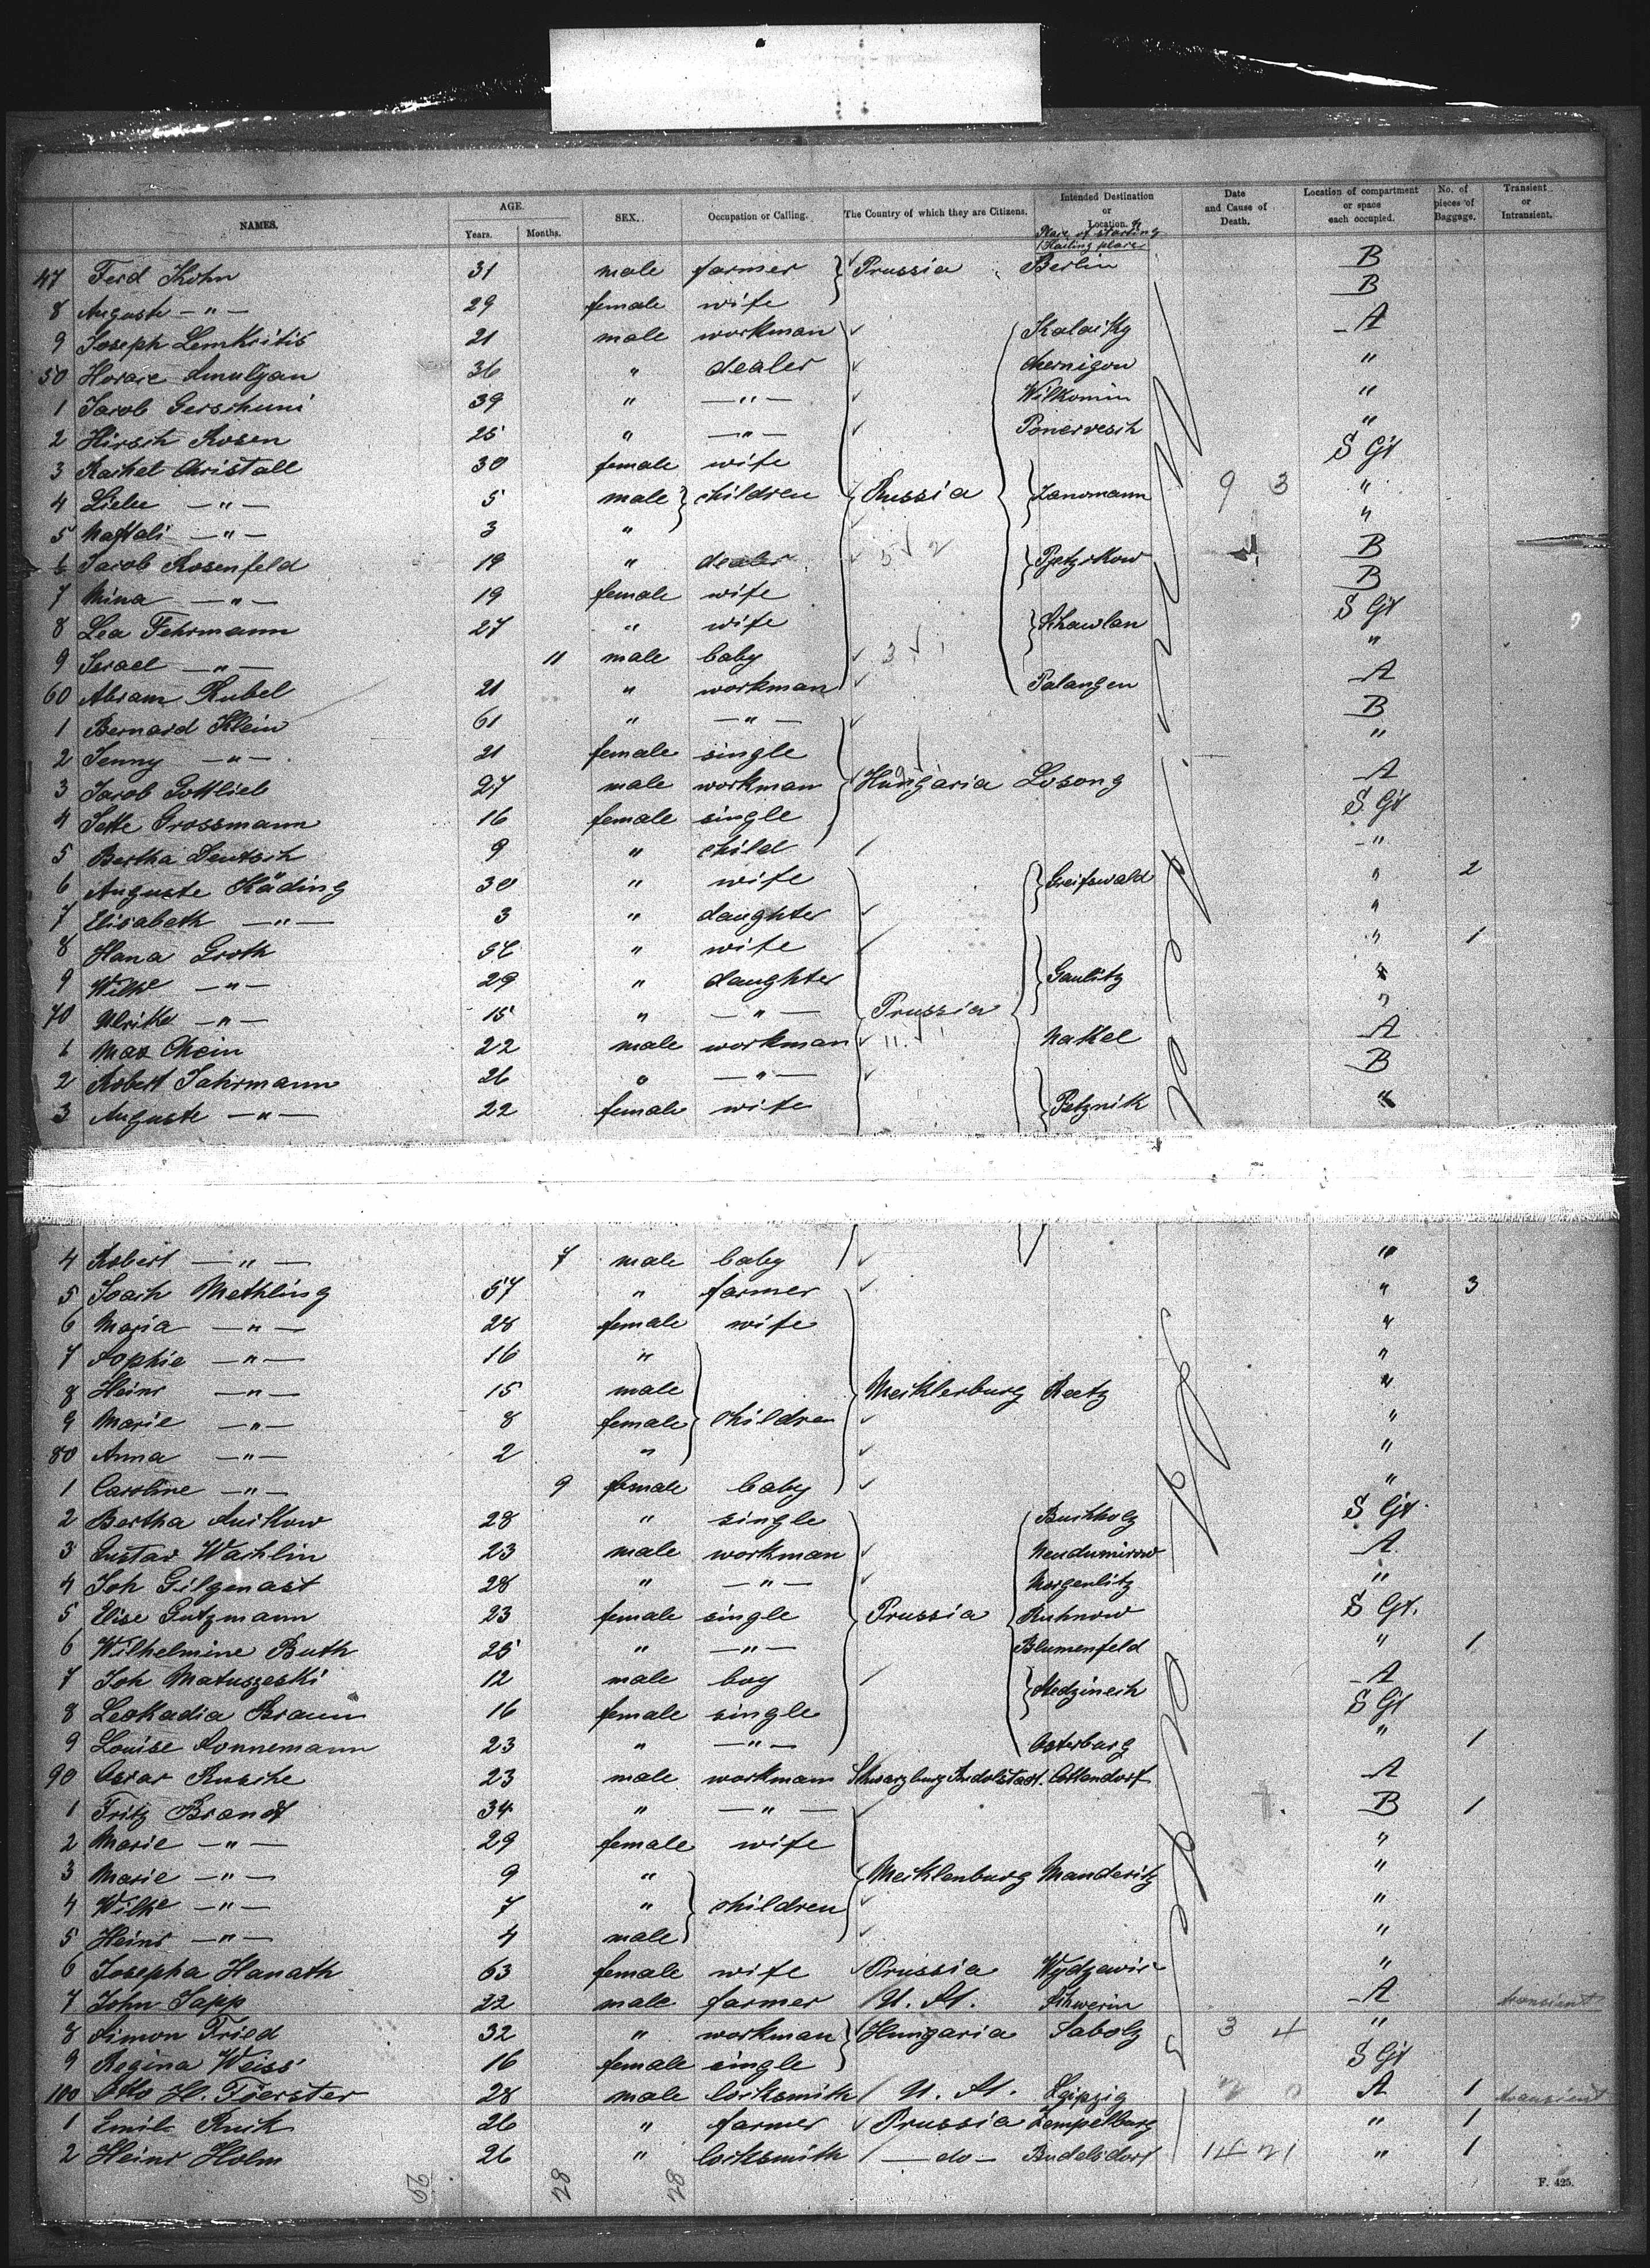 NAMES. AGE. Years. Months. SEX. Occupation or Calling. The Country of which they are Citizens. Intended Destination or Location. Place of starting Hailing place Date and Cause of Death. Location of compartment or space each occupied. No. of pieces of Baggage. Transient or Intransient.
47 Ferd Kohn 31 male farmer Prussia Berlin B
8 Auguste —"— 29 female wife B
9 Joseph Lemkritis 21 male workman A
50 Horace 36 " dealer Chernigow "
1 Jacob Gerschuni 39 " —"— Wilkomin "
2 Hirsch Rosen 25 " —"— Ponervesch "
3 Rachel Christall 30 female wife S Gt
4 —"— 5 male children Russia 9 3 "
5 Naftali —"— 3 " "
6 Jacob Rosenfeld 19 " dealer 5 2 B
7 Mina —"— 19 female wife B
8 Lea Fehrmann 27 " wife Schawlan S Gt
9 Israel —"— 11 male baby 3 1 "
60 Abram Rubel 21 " workman Palangen A
1 Bernard Klein 61 " —"— B
2 Jenny —"— 21 female single "
3 Jacob Gottlieb 27 male workman Hungaria Losong A
4 Jette Grossmann 16 female single S Gt
5 Bertha Deutsch 9 " child "
6 Auguste Käding 30 " wife Greifswald " 2
7 Elisabeth —"— 3 " daughter "
8 Hana Groth 58 " wife " 1
9 Wilhe —"— 29 " daughter Gaulitz "
70 Ulrike —"— 15 " —"— Prussia "
1 Max Chein 22 male workman 11 Nakel A
2 Robert Fahrmann 26 " —"— B
3 Auguste —"— 22 female wife Petznik "
4 Robert —"— 7 male baby "
5 Joach Methling 57 " farmer " 3
6 Maria —"— 28 female wife "
7 Sophie —"— 16 " "
8 Heinr —"— 15 male Mecklenburg Reetz "
9 Marie —"— 8 female children "
80 Anna —"— 2 " "
1 Caroline —"— 9 female baby "
2 Bertha 28 " single Buchholz S Gt
3 Gustav Wachlin 23 male workman A
4 Joh Gilgenast 28 " —"— "
5 Elise Gutzmann 23 female single Prussia Ruhnow S Gt.
6 Wilhelmine Buth 25 " —"— Blumenfeld " 1
7 Joh Matuszeski 12 male boy A
8 Leokadia Braun 16 female single S Gt
9 Louise Sonnemann 23 " —"— Osterburg " 1
90 Oscar Rusche 23 male workman Schwarzburg Rudolstadt. A
1 Fritz Brandt 34 " —"— B 1
2 Marie —"— 29 female wife "
3 Marie —"— 9 " Mecklenburg Manderitz "
4 Wilhe —"— 7 " children "
5 Heinr —"— 4 male "
6 Josepha Hanath 63 female wife Prussia "
7 John Sapp 22 male farmer U. St. Schwerin A transient
8 Simon Fried 32 " workman Hungaria Sabolz 3 4 "
9 Regina Weiss 16 female single S Gt
100 Otto H. Foerster 28 male locksmith U. St. Leipzig A 1 transient
1 Emil Ruck 26 " farmer Prussia Zempelburg " 1
2 Heinr Holm 26 " locksmith —do— Budelsdorf " 1
28 28
F. 425.